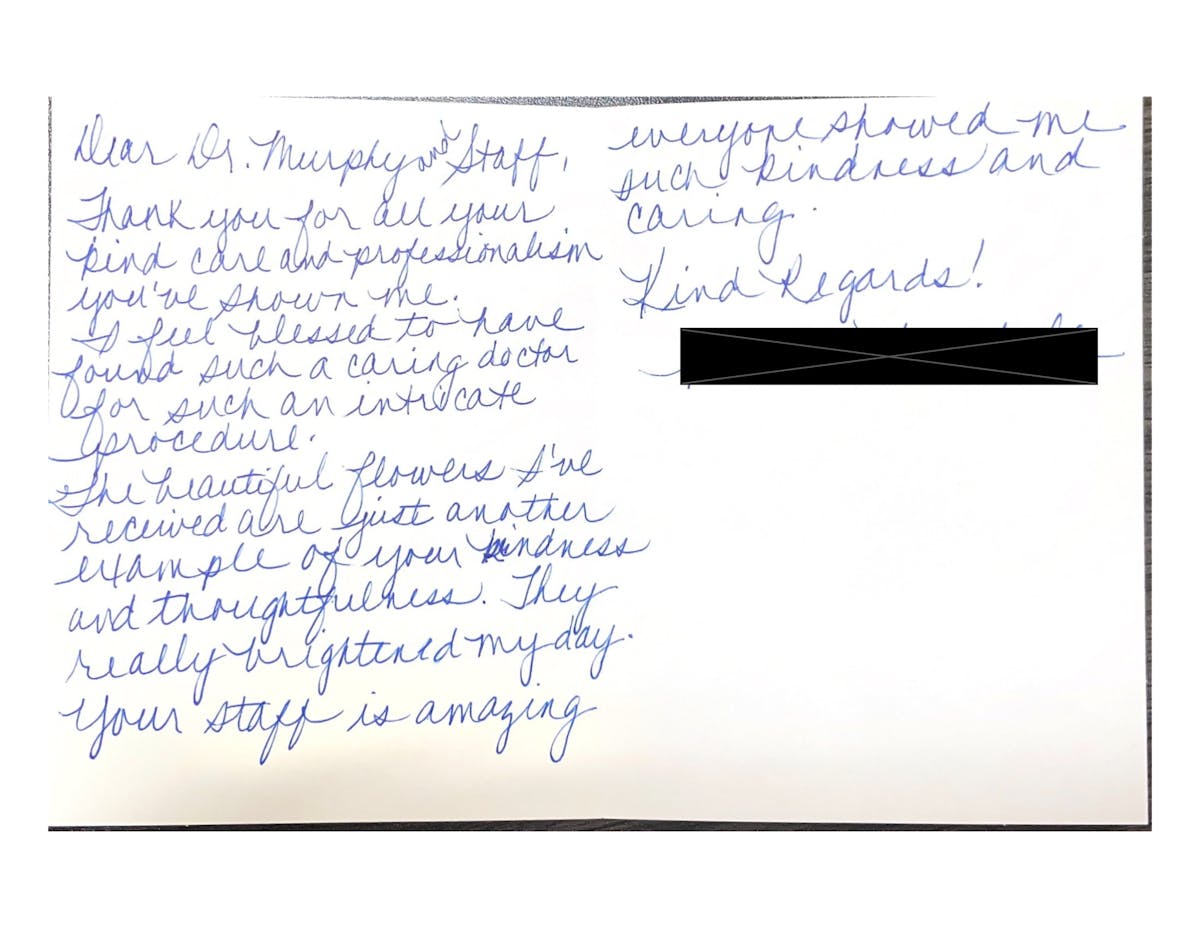 Dear Dr. Murphy and Staff,
Thank you for all your
kind care and professionalism
you've shown me.
I feel blessed to have
found such a caring doctor
for such an intricate
procedure.
The beautiful flowers I've
received are just another
example of your kindness
and thoughtfulness. They
really brightened my day.
Your staff is amazing
everyone showed me
such kindness and
caring.
Kind Regards!